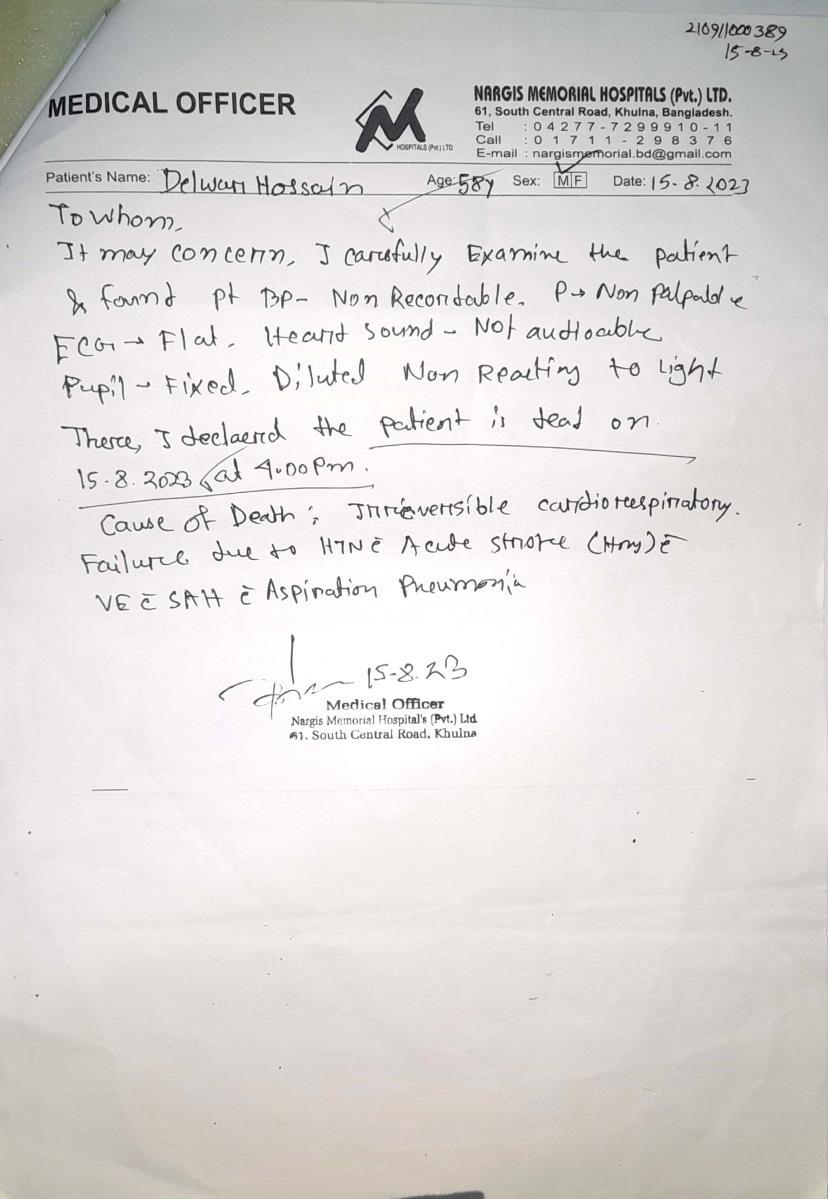 21091/000389
15-8-23
MEDICAL OFFICER
HOSPITALS (Pvt.) LTD.
NARGIS MEMORIAL HOSPITALS (Pvt.) LTD.
61, South Central Road, Khulna, Bangladesh.
Tel : 04277-7299910-11
Call : 01711-298376
E-mail : nargismemorial.bd@gmail.com
Patient's Name: Delwar Hossain Age: 58y Sex: M F Date: 15-8.2023
To whom,
It may concern, I carefully Examine the patient
& found pt BP- Non Recordable. P→ Non Palpable
ECG → Flat. Heart sound - Not audioable
Pupil → Fixed. Diluted Non Reacting to Light
There, I declaerd the patient is dead on.
15.8.2023 at 4.00 Pm.
Cause of Death: Irrieversible cardiorespiratory.
Failure due to HTN c̄ Acute stroke c̄
VE c̄ SAH c̄ Aspiration Pneumonia
15-8.23
Medical Officer
Nargis Memorial Hospital's (Pvt.) Ltd
61. South Central Road, Khulna